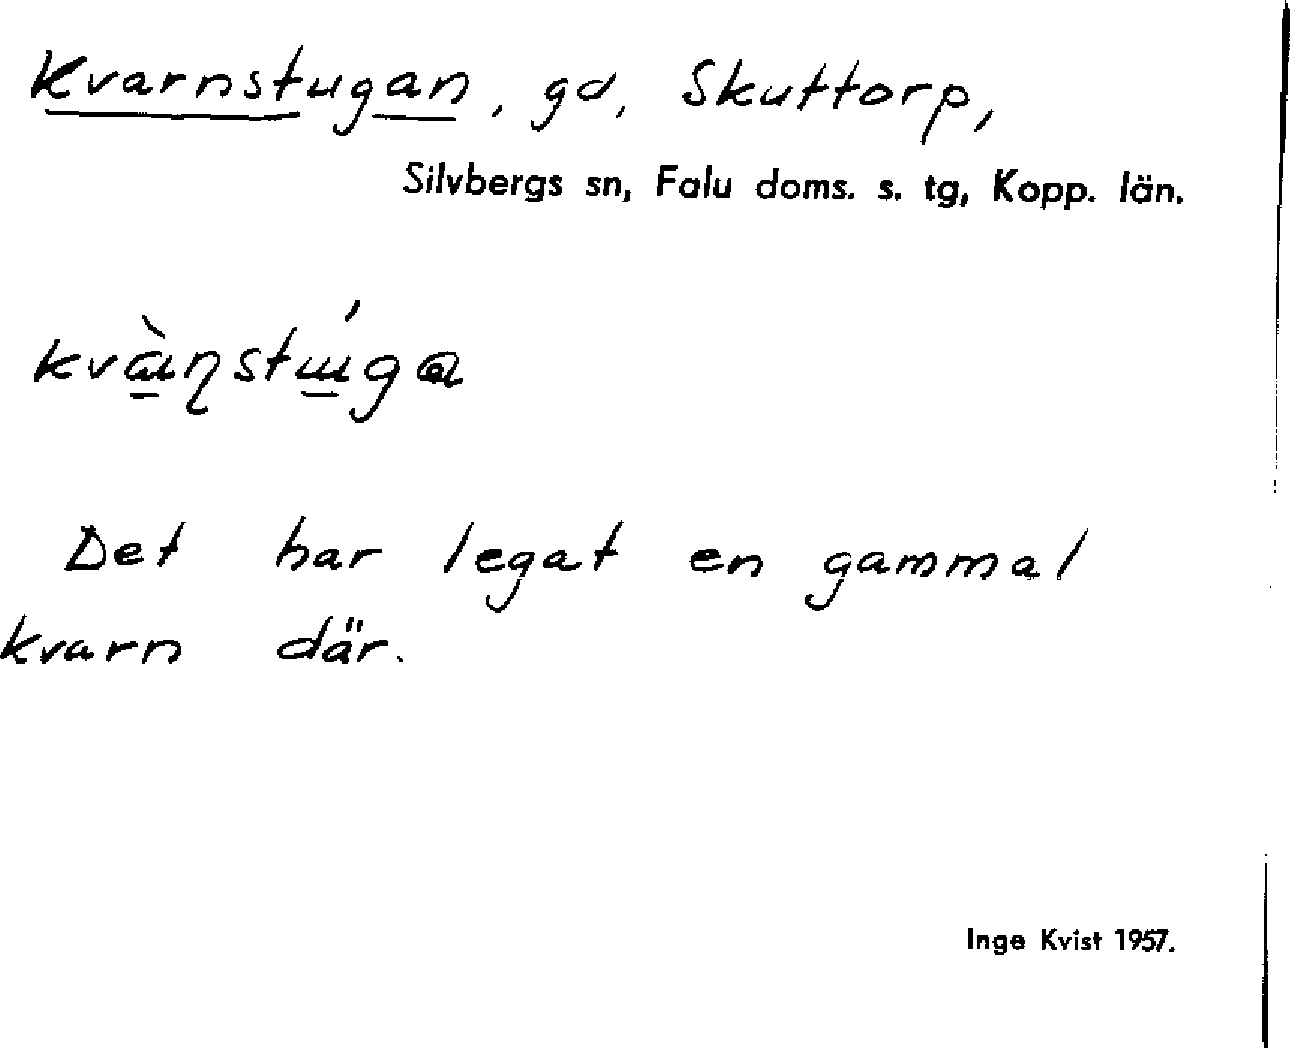 Kvarnstugan, gd, Skuttorp,
Silvbergs sn, Falu doms. s. tg, Kopp. län.
Det har legat en gammal
kvarn där.
Inge Kvist 1957.